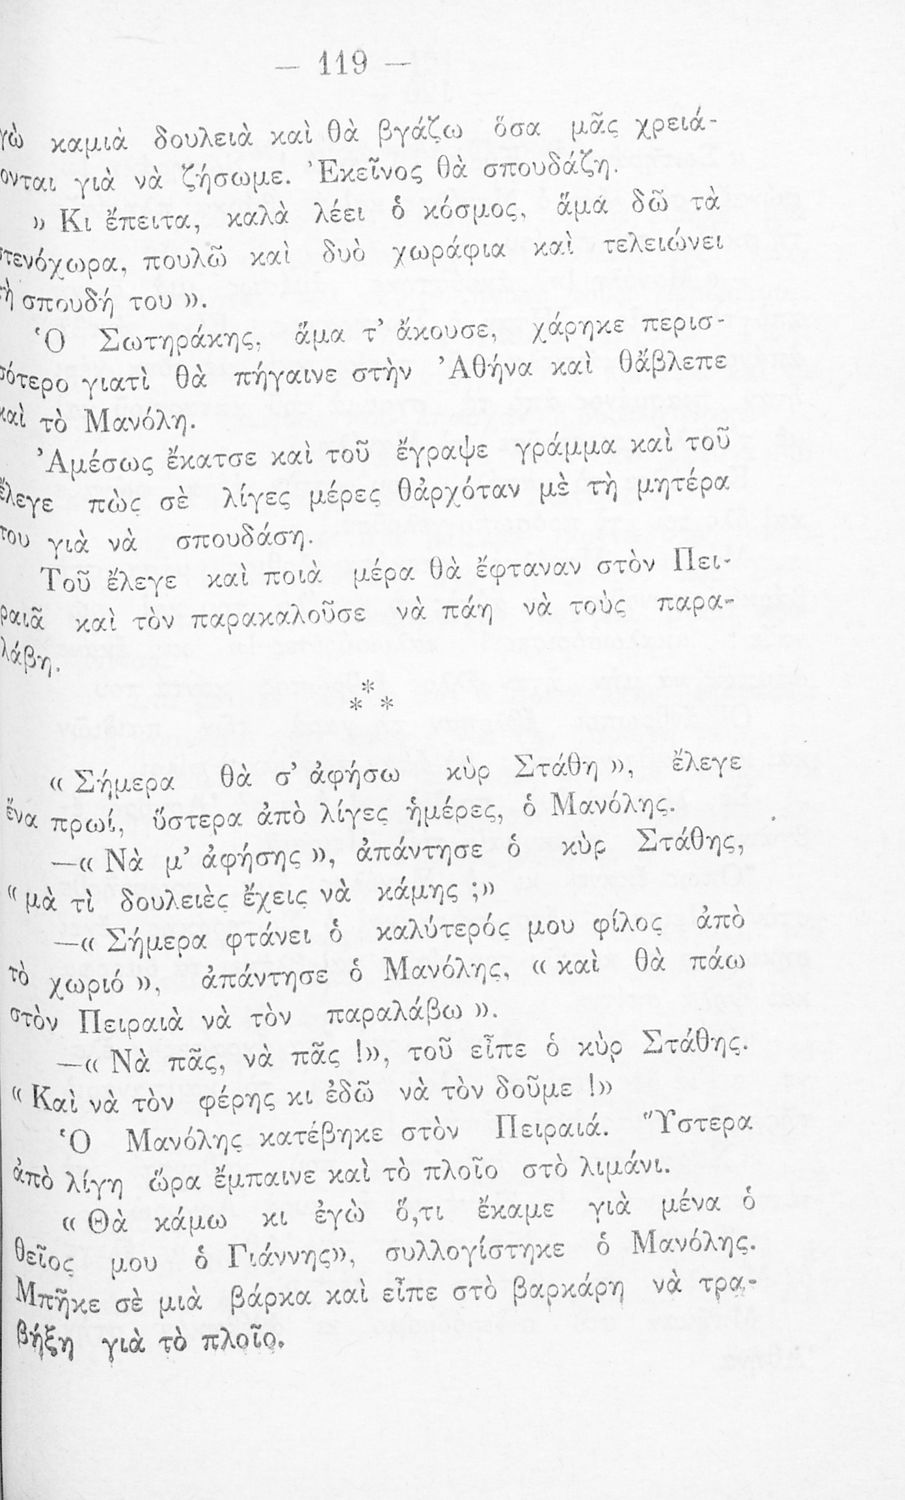 — 119 —
γὼ καμιὰ δουλειὰ καὶ θὰ βγάζω ὅσα μᾶς χρειά-
ονται γιὰ νὰ ζήσωμε. Ἐκεῖνος θὰ σπουδάζη.
» Κι ἔπειτα, καλὰ λέει ὁ κόσμος, ἅμα δῶ τὰ
στενόχωρα, πουλῶ καὶ δυὸ χωράφια καὶ τελειώνει
τὴ σπουδή του ».
Ὁ Σωτηράκης, ἅμα τ' ἄκουσε, χάρηκε περισ-
σότερο γιατὶ θὰ πήγαινε στὴν Ἀθήνα καὶ θἄβλεπε
καὶ τὸ Μανόλη.
Ἀμέσως ἔκατσε καὶ τοῦ ἔγραψε γράμμα καὶ τοῦ
ἔλεγε πὼς σὲ λίγες μέρες θἀρχόταν μὲ τὴ μητέρα
του γιὰ νὰ σπουδάση.
Τοῦ ἔλεγε καὶ ποιὰ μέρα θὰ ἔφταναν στὸν Πει-
ραιᾶ καὶ τὸν παρακαλοῦσε νὰ πάη νὰ τοὺς παρα-
λάβη.
*
* *
« Σήμερα θὰ σ' ἀφήσω κὺρ Στάθη », ἔλεγε
ἕνα πρωί, ὕστερα ἀπὸ λίγες ἡμέρες, ὁ Μανόλης.
—« Νὰ μ' ἀφήσης », ἀπάντησε ὁ κὺρ Στάθης,
« μὰ τὶ δουλειὲς ἔχεις νὰ κάμης ;»
—« Σήμερα φτάνει ὁ καλύτερός μου φίλος ἀπὸ
τὸ χωριό », ἀπάντησε ὁ Μανόλης, « καὶ θὰ πάω
στὸν Πειραιὰ νὰ τὸν παραλάβω ».
—« Νὰ πᾶς, νὰ πᾶς !», τοῦ εἶπε ὁ κὺρ Στάθης.
« Καὶ νὰ τὸν φέρης κι ἐδῶ νὰ τὸν δοῦμε !»
Ὁ Μανόλης κατέβηκε στὸν Πειραιά. Ὕστερα
ἀπὸ λίγη ὥρα ἔμπαινε καὶ τὸ πλοῖο στὸ λιμάνι.
« Θὰ κάμω κι ἐγὼ ὅ,τι ἔκαμε γιὰ μένα ὁ
θεῖος μου ὁ Γιάννης», συλλογίστηκε ὁ Μανόλης.
Μπῆκε σὲ μιὰ βάρκα καὶ εἶπε στὸ βαρκάρη νὰ τρα-
βήξη γιὰ τὸ πλοῖο.